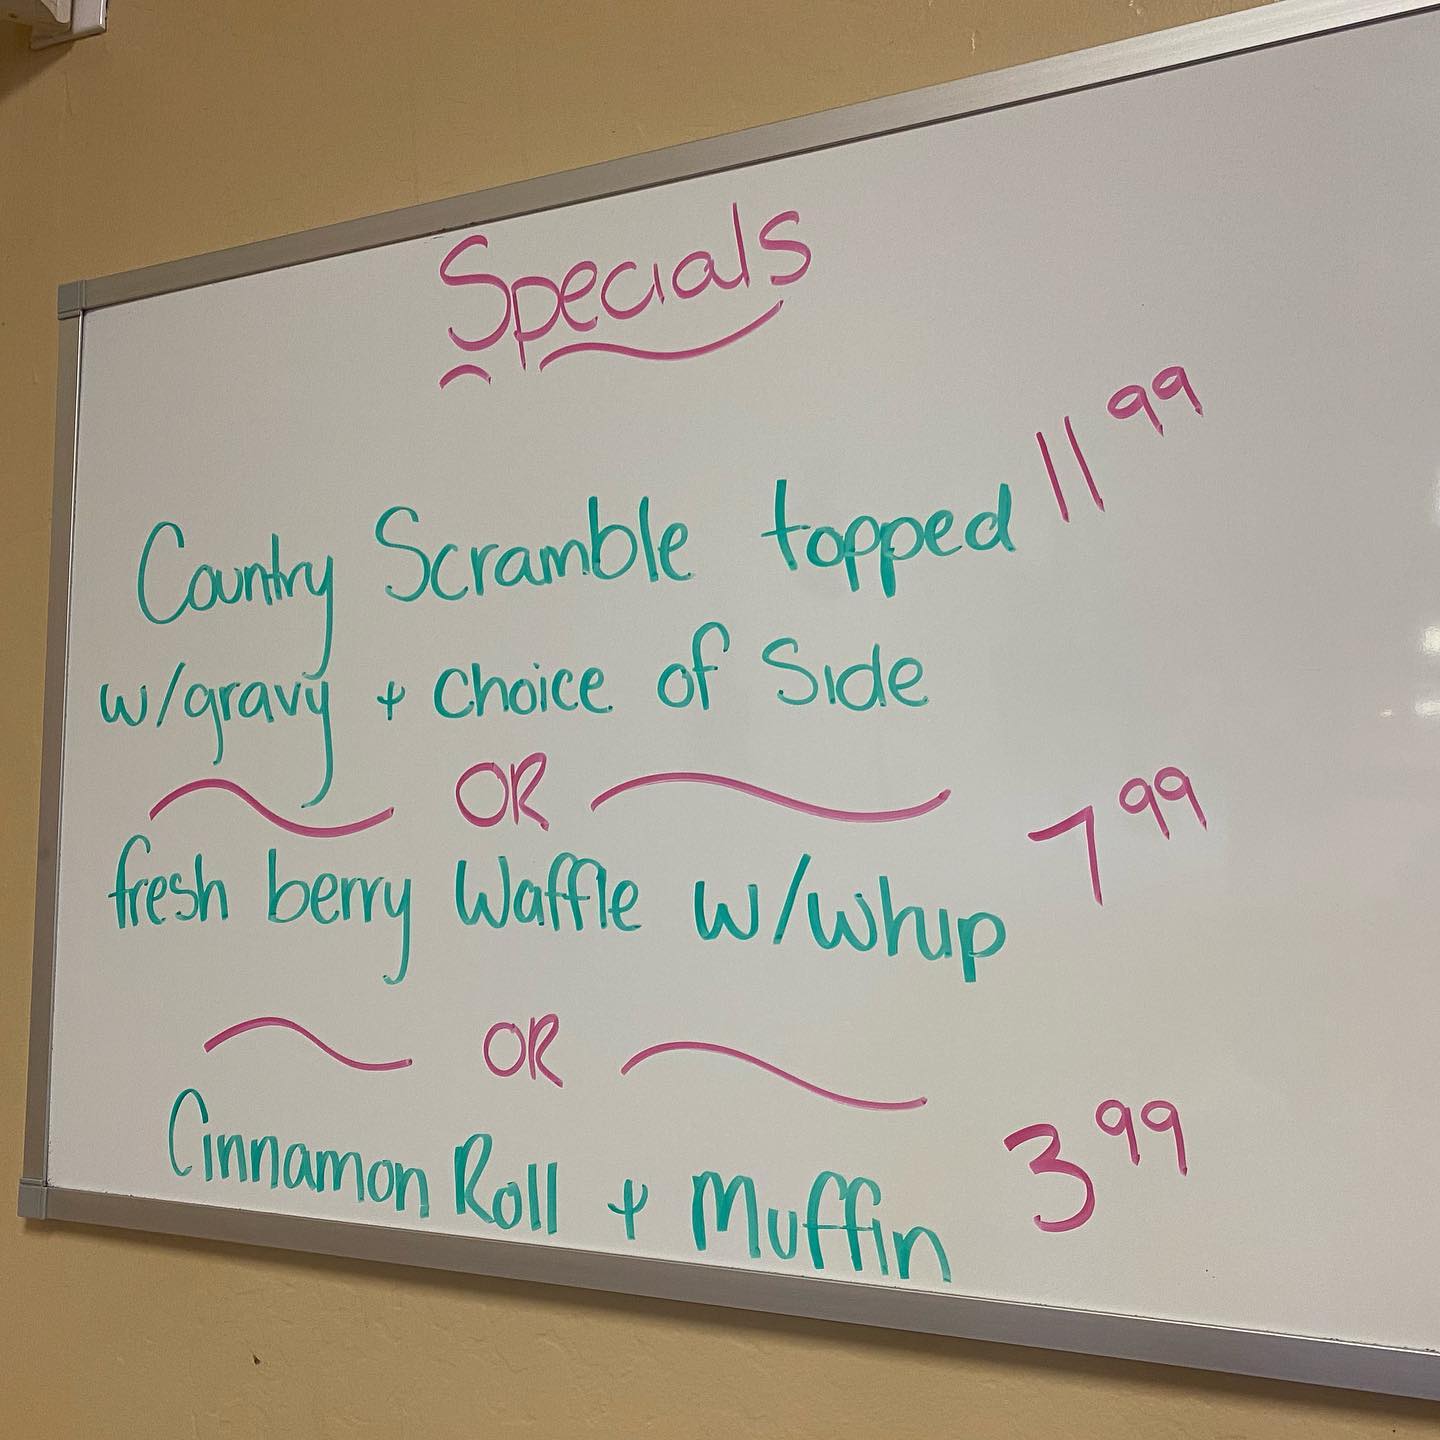 Specials
Country Scramble topped 11 99
w/gravy + choice of Side
OR
fresh berry Waffle w/whip 7 99
OR
Cinnamon Roll + Muffin 3 99